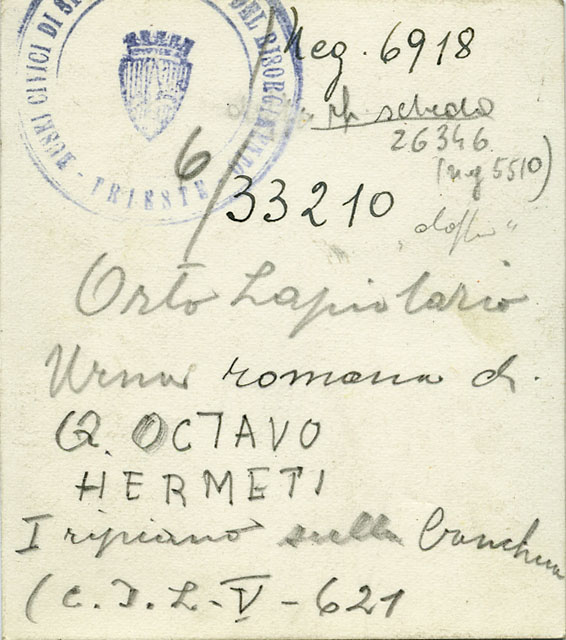 MUSEI CIVICI DI DEL RISORGIMENTO
- TRIESTE -
Neg. 6918
scheda
26346
(neg 5510)
6/33210
"doppio"
Orto Lapidario
Urna romana di
Q. OCTAVO
HERMETI
I ripiano sulla
(C.I.L. V - 621